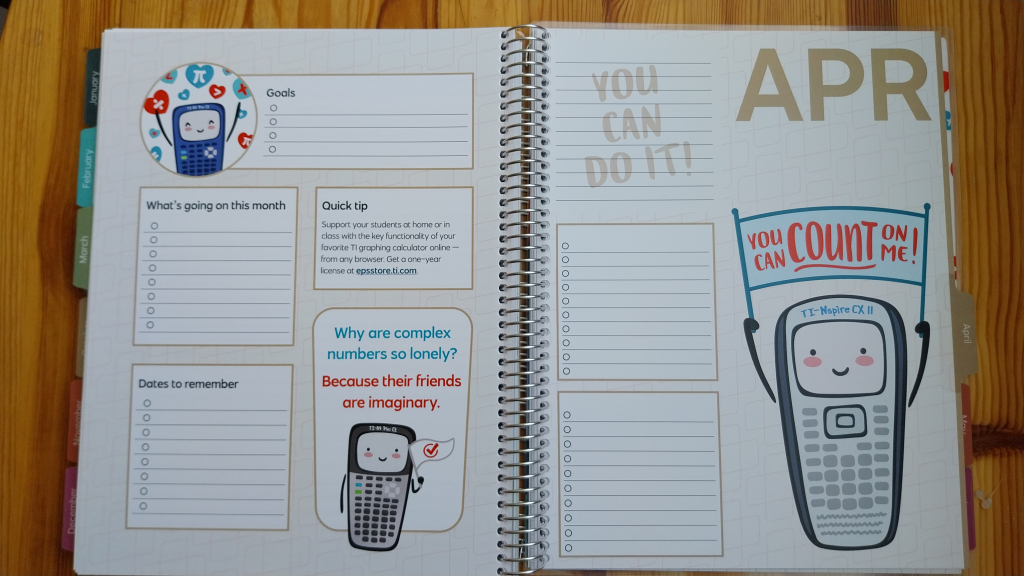 January
February
March
November
December
TI-84 Plus CE
Goals
What's going on this month
Quick tip
Support your students at home or in
class with the key functionality of your
favorite TI graphing calculator online —
from any browser. Get a one-year
license at epsstore.ti.com.
Why are complex
numbers so lonely?
Because their friends
are imaginary.
Dates to remember
TI-84 Plus CE
YOU
CAN
DO IT!
APR
YOU CAN COUNT ON ME!
TI-Nspire CX II
April
May